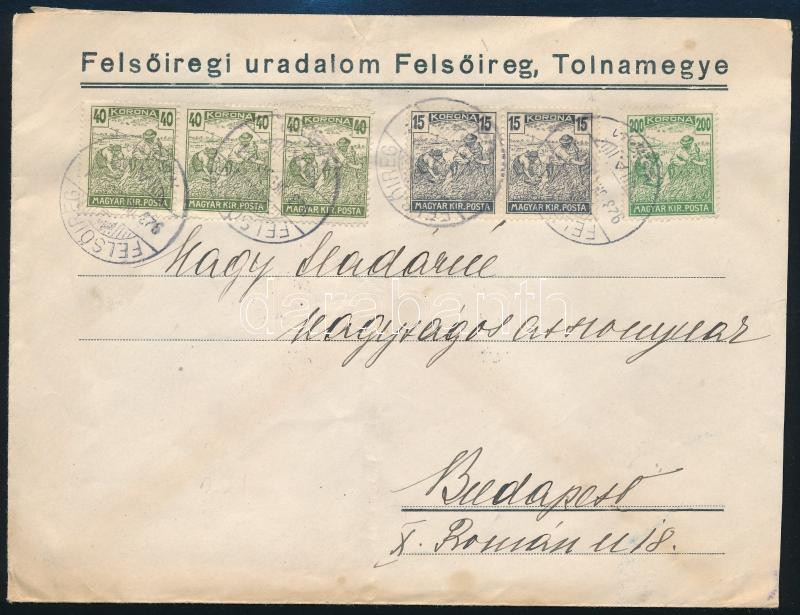 Felsőiregi uradalom Felsőireg, Tolnamegye
40 KORONA 40 MAGYAR KIR. POSTA
40 KORONA 40 MAGYAR KIR. POSTA
40 KORONA 40 MAGYAR KIR. POSTA
15 KORONA 15 MAGYAR KIR. POSTA
15 KORONA 15 MAGYAR KIR. POSTA
200 KORONA 200 MAGYAR KIR. POSTA
FELSŐIREG
Nagy Aladárné
nagyságos asszonynak
darabanth
Budapest
X. Román u 18.